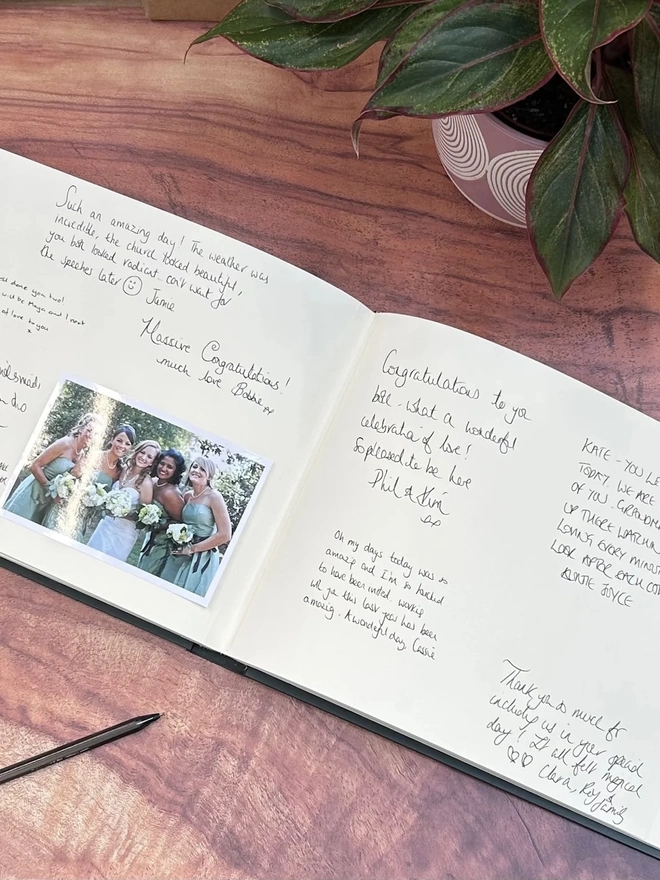 Such an amazing day! The weather was
incredible, the church looked beautiful,
you both looked radiant. can't wait for
the speeches later ☺ Jamie
done you two!
will be Maya and I next
of love to you
x
Massive Congratulations!
much love Bobbie xx
Congratulations to you
both. What a wonderful
celebration of love!
So pleased to be here
Phil & Kim
xx
Oh my days today was so
amazing and I'm so honoured
to have been invited. working
with you this last year has been
amazing. A wonderful day, Cassie
KATE - YOU
TODAY. WE ARE
OF YOU. GRANDMA
UP THERE WATCHIN
LOVING EVERY MINUT
LOOK AFTER EACH OTH
AUNTIE JOYCE
Thank you so much for
including us in your special
day! It all felt magical
♡♡ Clara, Roy & family